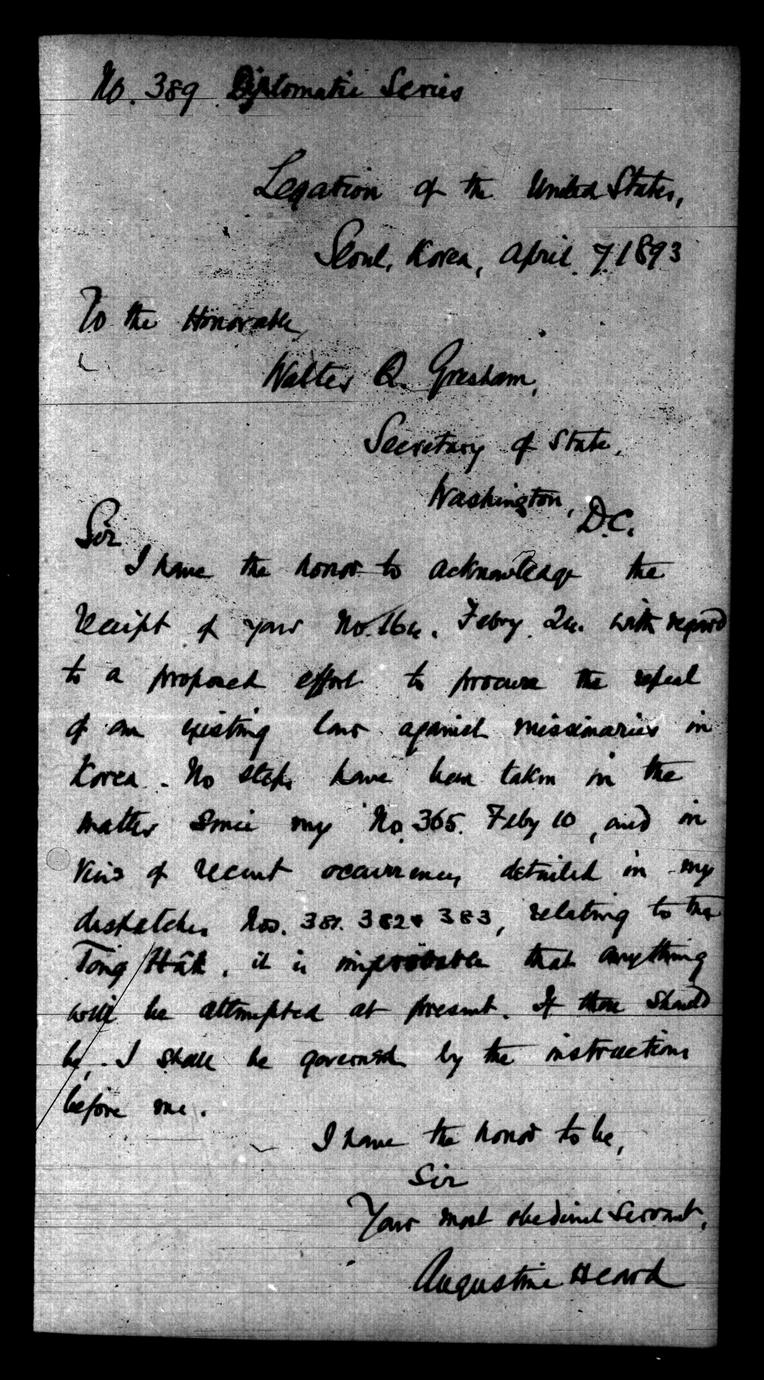 No. 389 Diplomatic Series
Legation of the United States,
Seoul, Korea, April 7, 1893
To the Honorable,
Walter Q. Gresham,
Secretary of State,
Washington, D.C.
Sir
I have the honor to acknowledge the
receipt of your No. 164. Febry. 24. with regard
to a proposed effort to procure the repeal
of an existing law against missionaries in
Korea. No steps have been taken in the
matter since my No. 365. Feby 10, and in
view of recent occurrences detailed in my
dispatches Nos. 381. 382 & 383, relating to the
Tong Hak, it is improbable that anything
will be attempted at present. If there should
be, I shall be governed by the instructions
before me.
I have the honor to be,
Sir
Your most obedient servant,
Augustine Heard